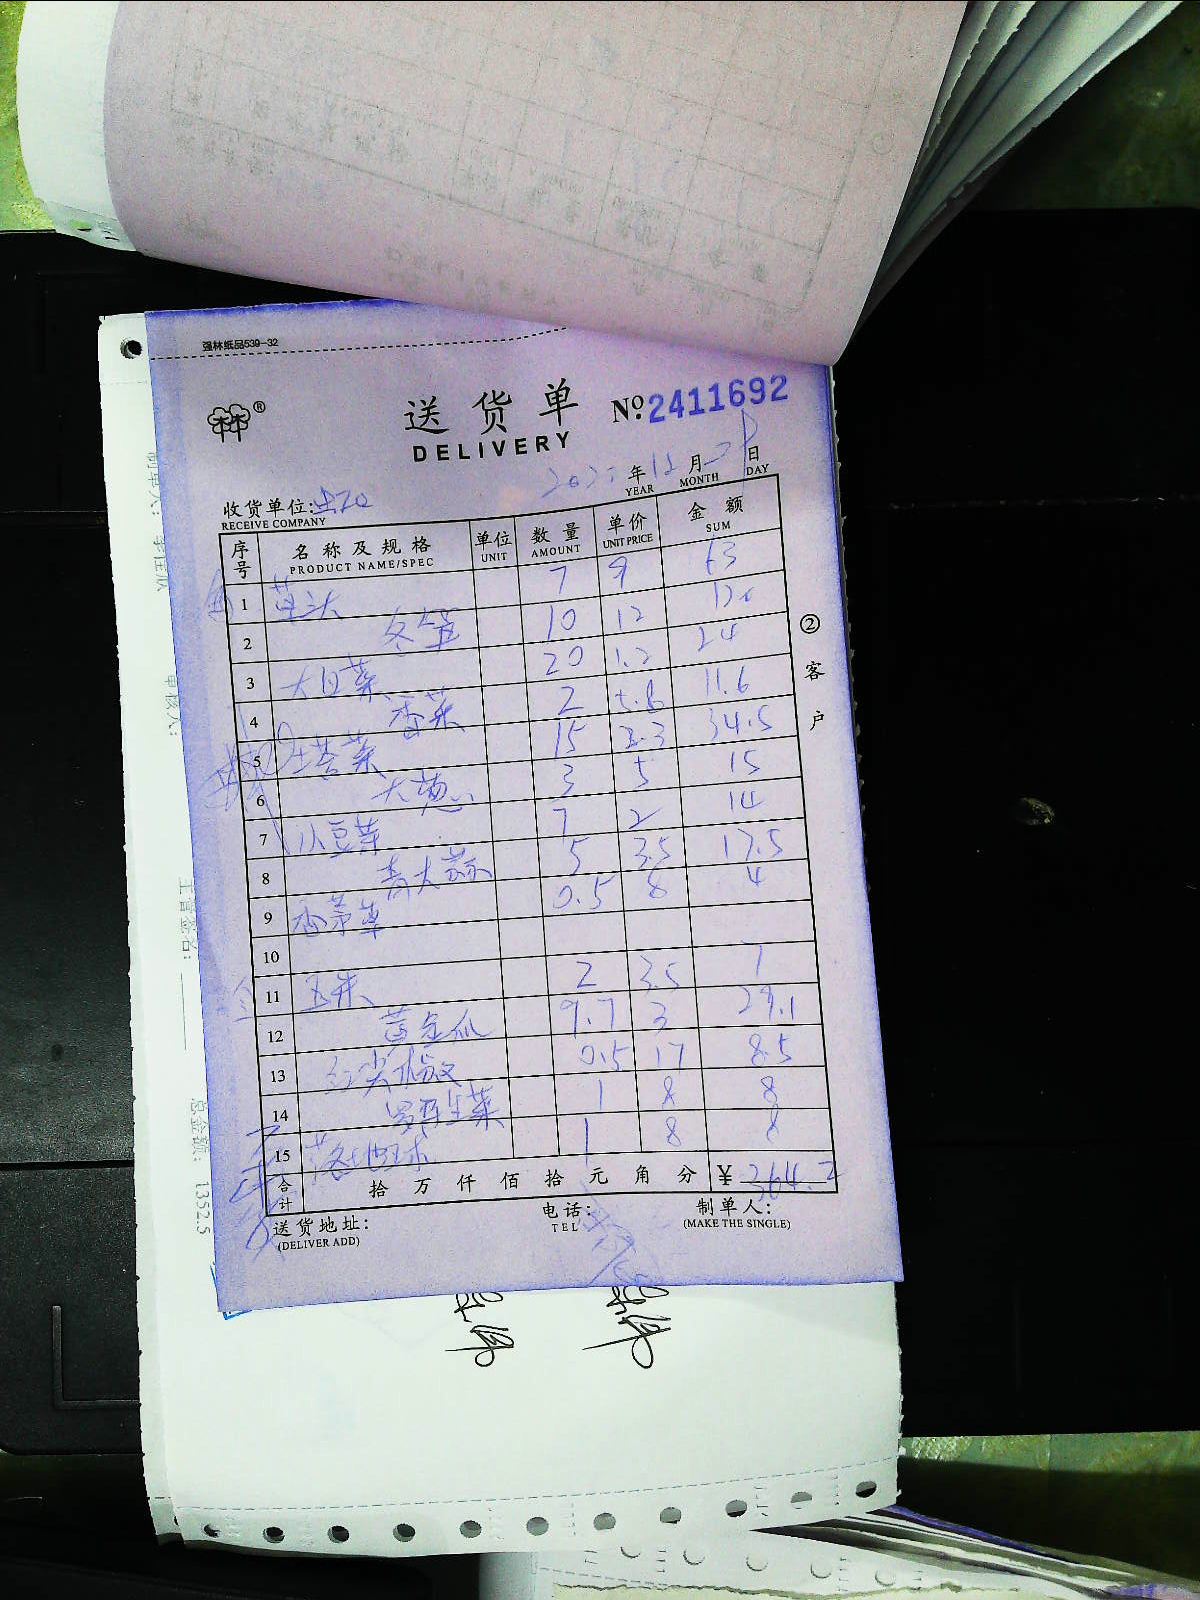 强林纸品539-32
送货单
DELIVERY
№ 2411692
年 YEAR 12 月 MONTH 日 DAY
收货单位:
RECEIVE COMPANY
序号 名称及规格 PRODUCT NAME/SPEC 单位 UNIT 数量 AMOUNT 单价 UNIT PRICE 金额 SUM
1 草头 7 9 63
2 冬笋 10 12 120
3 大白菜 20 1.2 24
4 香菜 2 5.8 11.6
5 生菜 15 2.3 34.5
6 大葱 3 5 15
7 小豆芽 7 2 14
8 青大蒜 5 3.5 17.5
9 香茅草 0.5 8 4
10
11 玉米 2 3.5 7
12 黄金瓜 9.7 3 29.1
13 红尖椒 0.5 17 8.5
14 罗马生菜 1 8 8
15 1 8 8
合计 拾 万 仟 佰 拾 元 角 分 ¥ 364.2
送货地址:
(DELIVER ADD)
电话:
TEL
制单人:
(MAKE THE SINGLE)
② 客户
审核人:
主管签名:
总金额: 1352.5